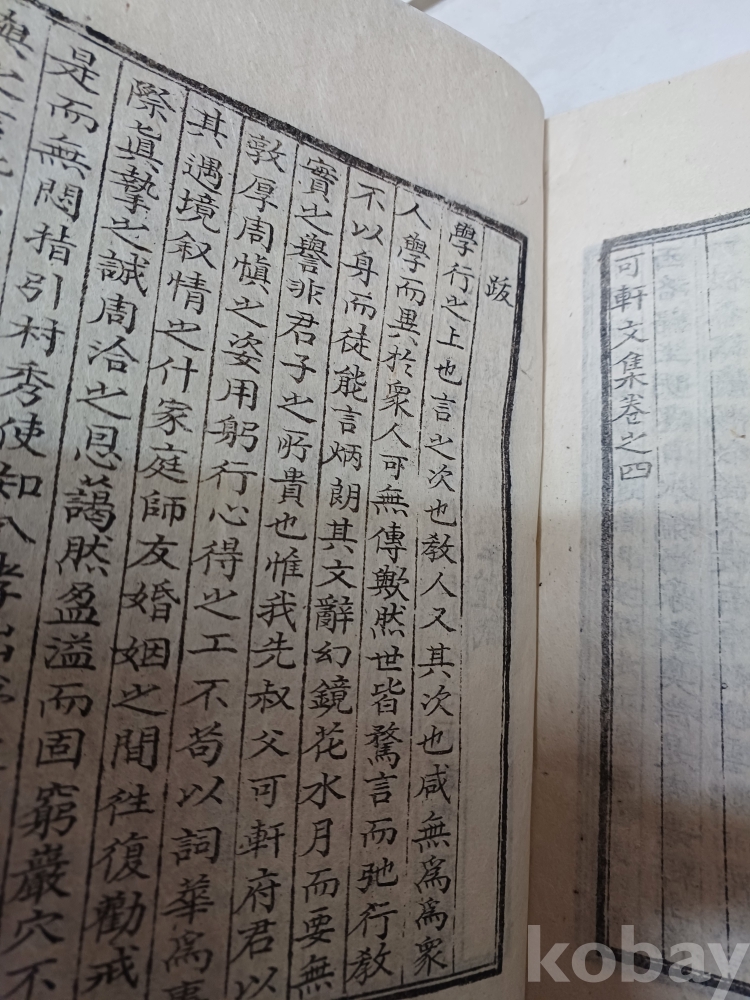 可軒文集卷之四
跋
學行之上也言之次也教人又其次也咸無爲爲衆
人學而異於衆人可無傳歟然世皆騖言而弛行教
不以身而徒能言炳朗其文辭幻鏡花水月而要無
實之譽非君子之所貴也惟我先叔父可軒府君以
敦厚周愼之姿用躬行心得之工不苟以詞華爲事
其遇境叙情之什家庭師友婚姻之間往復勸戒
際眞摯之誠周洽之恩藹然盈溢而固窮巖穴不
是而無悶指引村秀使知
kobay